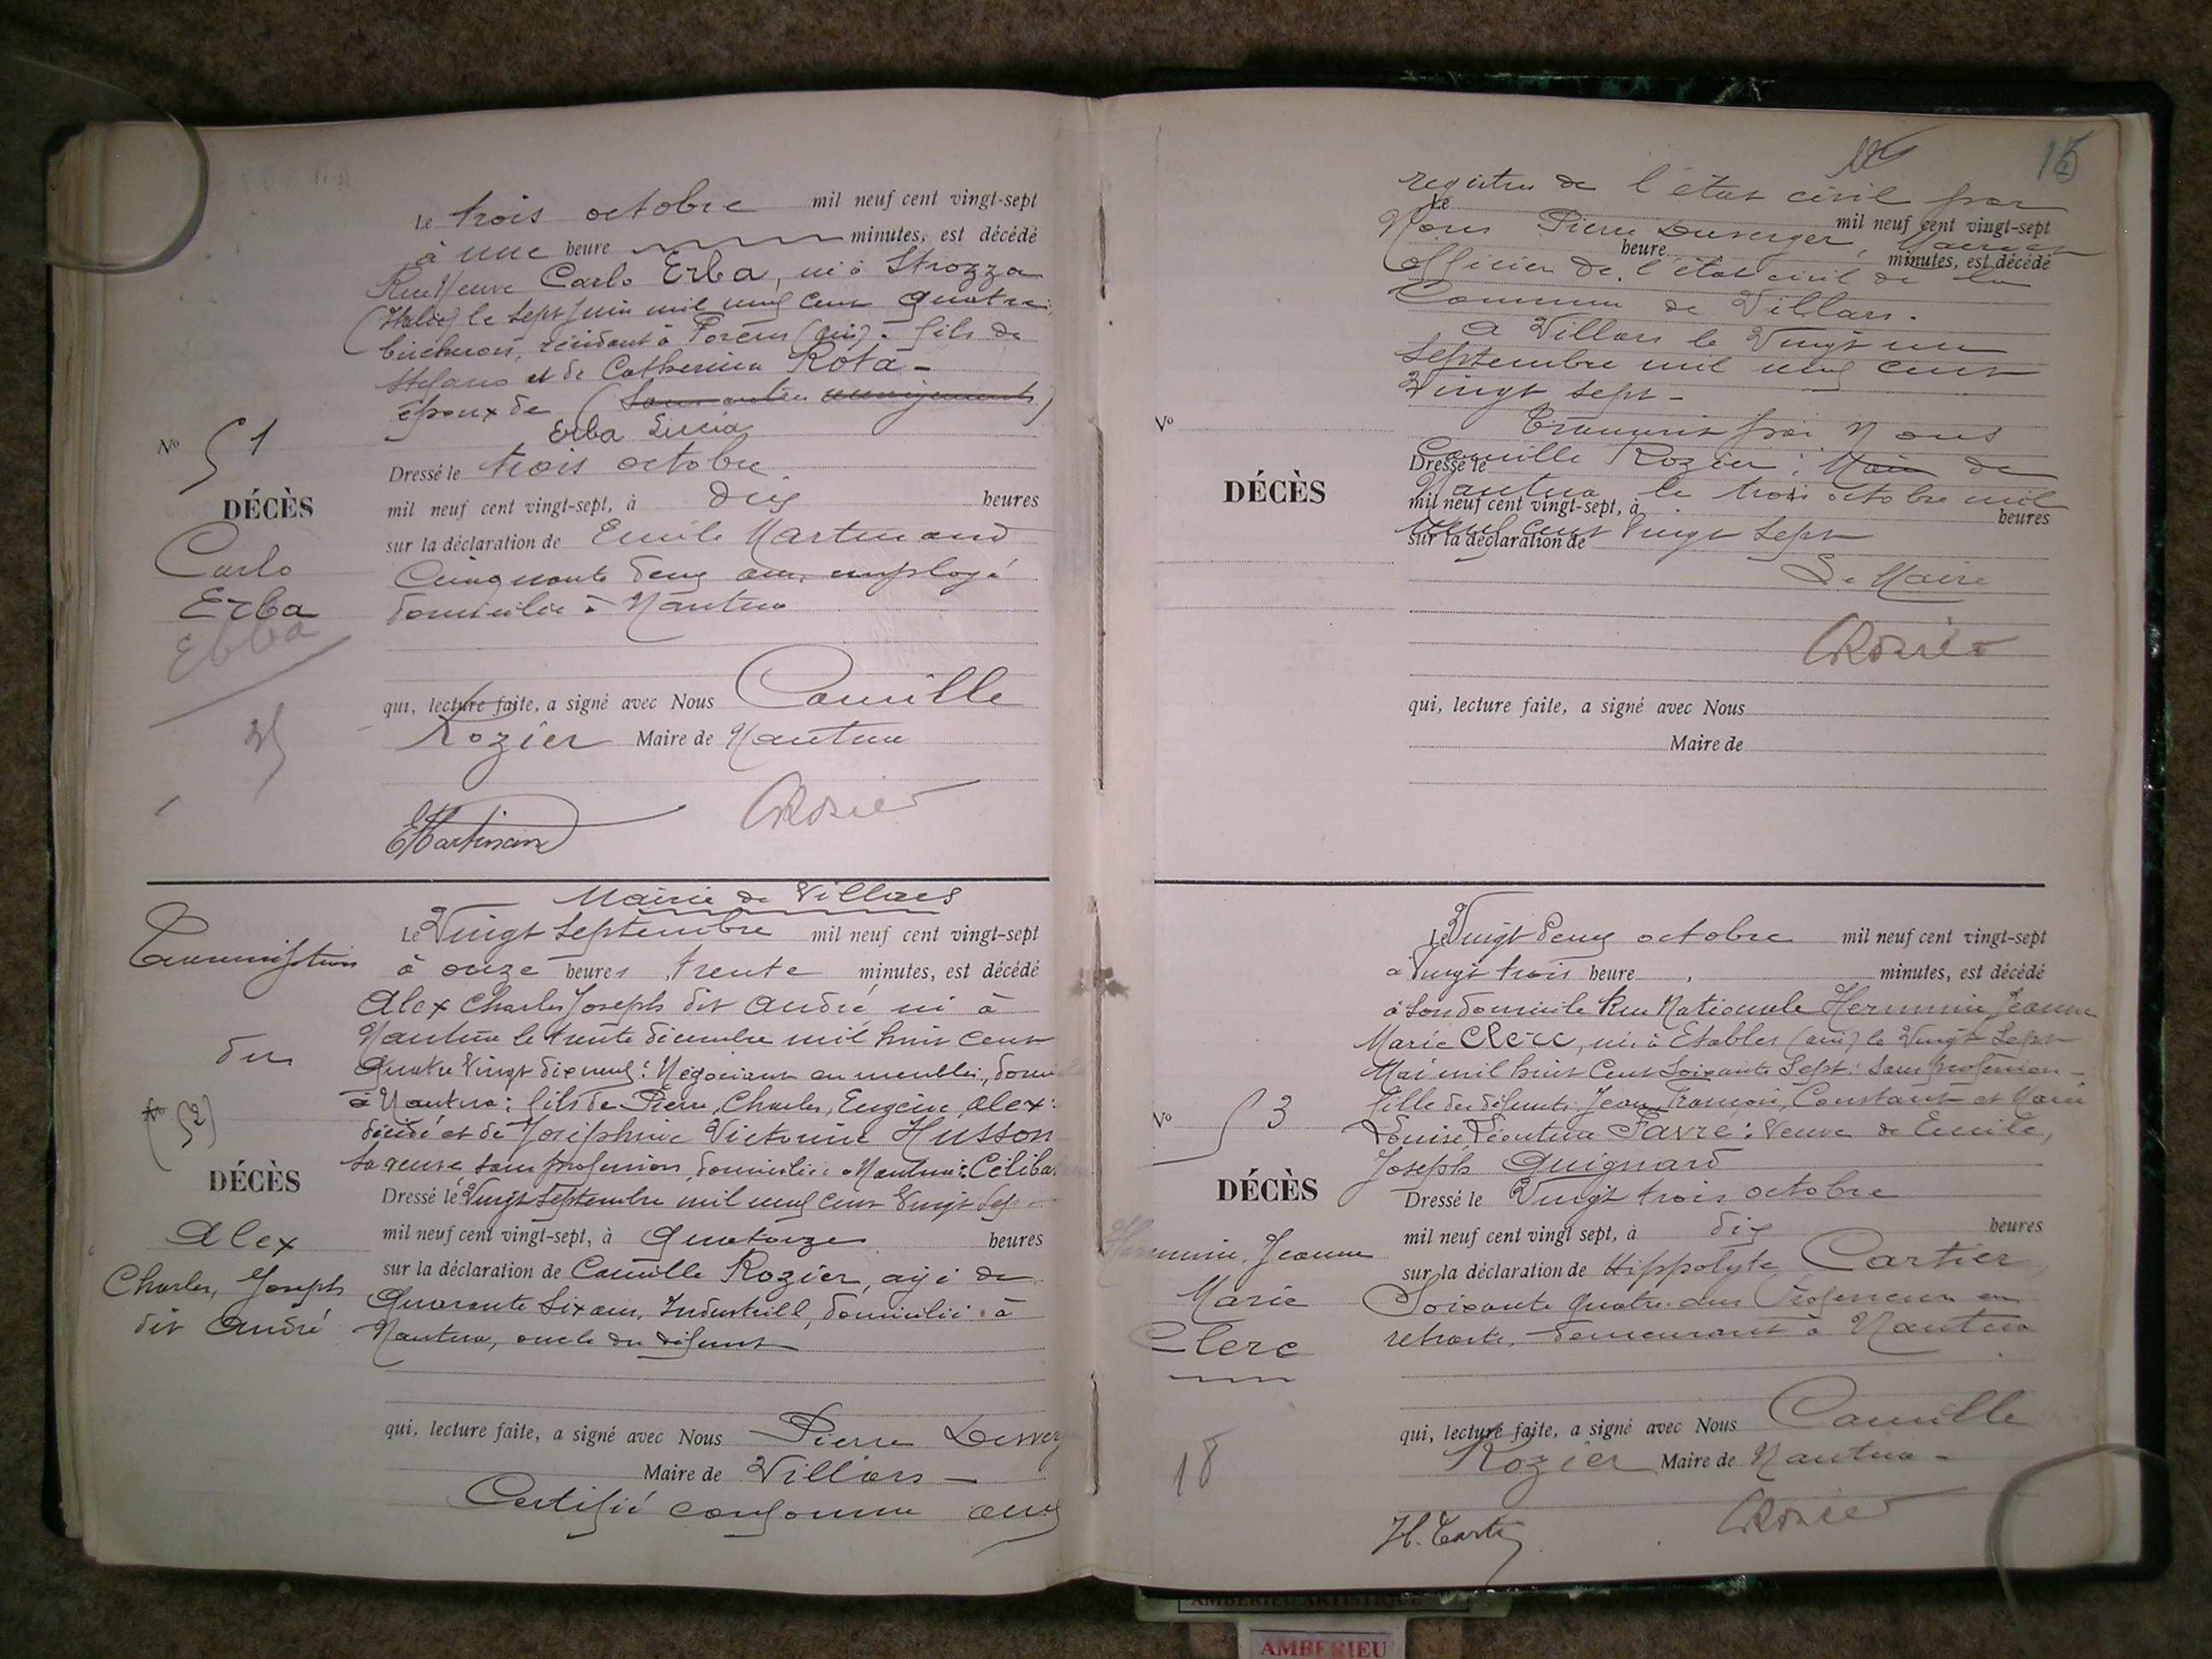 Le trois octobre mil neuf cent vingt-sept
à une heure minutes, est décédé
Rue Neuve Carlo Erba, né à Strozza
(Italie) le sept juin mil neuf cent quatre
résidant à Port (Ain). fils de
Stefano et de Catherina Rota -
époux de (Sans autres renseignements)
Erba Lucia
No 51
DÉCÈS
Carlo
Erba
Ebba
Dressé le trois octobre
mil neuf cent vingt-sept, à dix heures
sur la déclaration de Emile Martinand
Cinquante deux ans, employé
domicilié à Nantua
qui, lecture faite, a signé avec Nous Camille
Rozier Maire de Nantua
EMartinand CRozier
Mairie de Villars
Transcription
du
(No 52)
DÉCÈS
Alex
Charles, Joseph
dit André
Le Vingt Septembre mil neuf cent vingt-sept
à onze heures trente minutes, est décédé
Alex Charles Joseph dit André né à
Nantua le trente décembre mil huit cent
Quatre Vingt dix neuf: Négociant en meubles, domi
à Nantua: fils de Pierre, Charles, Eugène, Alex:
décédé et de Joséphine Victorine Husson
sa veuve sans profession, domiciliée à Nantua: Céliba
Dressé le Vingt Septembre mil neuf cent Vingt Sept
mil neuf cent vingt-sept, à Quatorze heures
sur la déclaration de Camille Rozier, agé de
Quarante Six ans, Industriel, domicilié à
Nantua, oncle du défunt
qui, lecture faite, a signé avec Nous Pierre Duverg
Maire de Villars -
Certifié conforme aux
15
registres de l'état civil par
Le mil neuf cent vingt-sept
Nous Pierre Duverger, Maire et
heure minutes, est décédé
officier de l'état civil de la
Commune de Villars.
A Villars le Vingt un
Septembre mil neuf cent
Vingt sept -
No
DÉCÈS
Transcrit par Nous
Dressé le
Camille Rozier: Maire de
Nantua le trois octobre mil
mil neuf cent vingt-sept, à heures
neuf cent Vingt Sept
sur la déclaration de
Le Maire
CRozier
qui, lecture faite, a signé avec Nous
Maire de
No 53
DÉCÈS
Hermine, Jeanne
Marie
Clerc
18
Le Vingt deux octobre mil neuf cent vingt-sept
à Vingt trois heure minutes, est décédé
à son domicile Rue Nationale Hermine Jeanne
Marie Clerc, née à Etables (Ain) le Vingt Sept
Mai mil huit Cent Soixante Sept: Sans profession -
fille des défunts Jean, François, Constant et Marie
Louise Léontine Favre: Veuve de Emile,
Joseph Guignard
Dressé le Vingt trois octobre
mil neuf cent vingt sept, à dix heures
sur la déclaration de Hippolyte Cartier
Soixante Quatre ans Professeur en
retraite, demeurant à Nantua
qui, lecture faite, a signé avec Nous Camille
Rozier Maire de Nantua -
H. Carti CRozier
AMBERIEU ARTISTIQUE
AMBERIEU